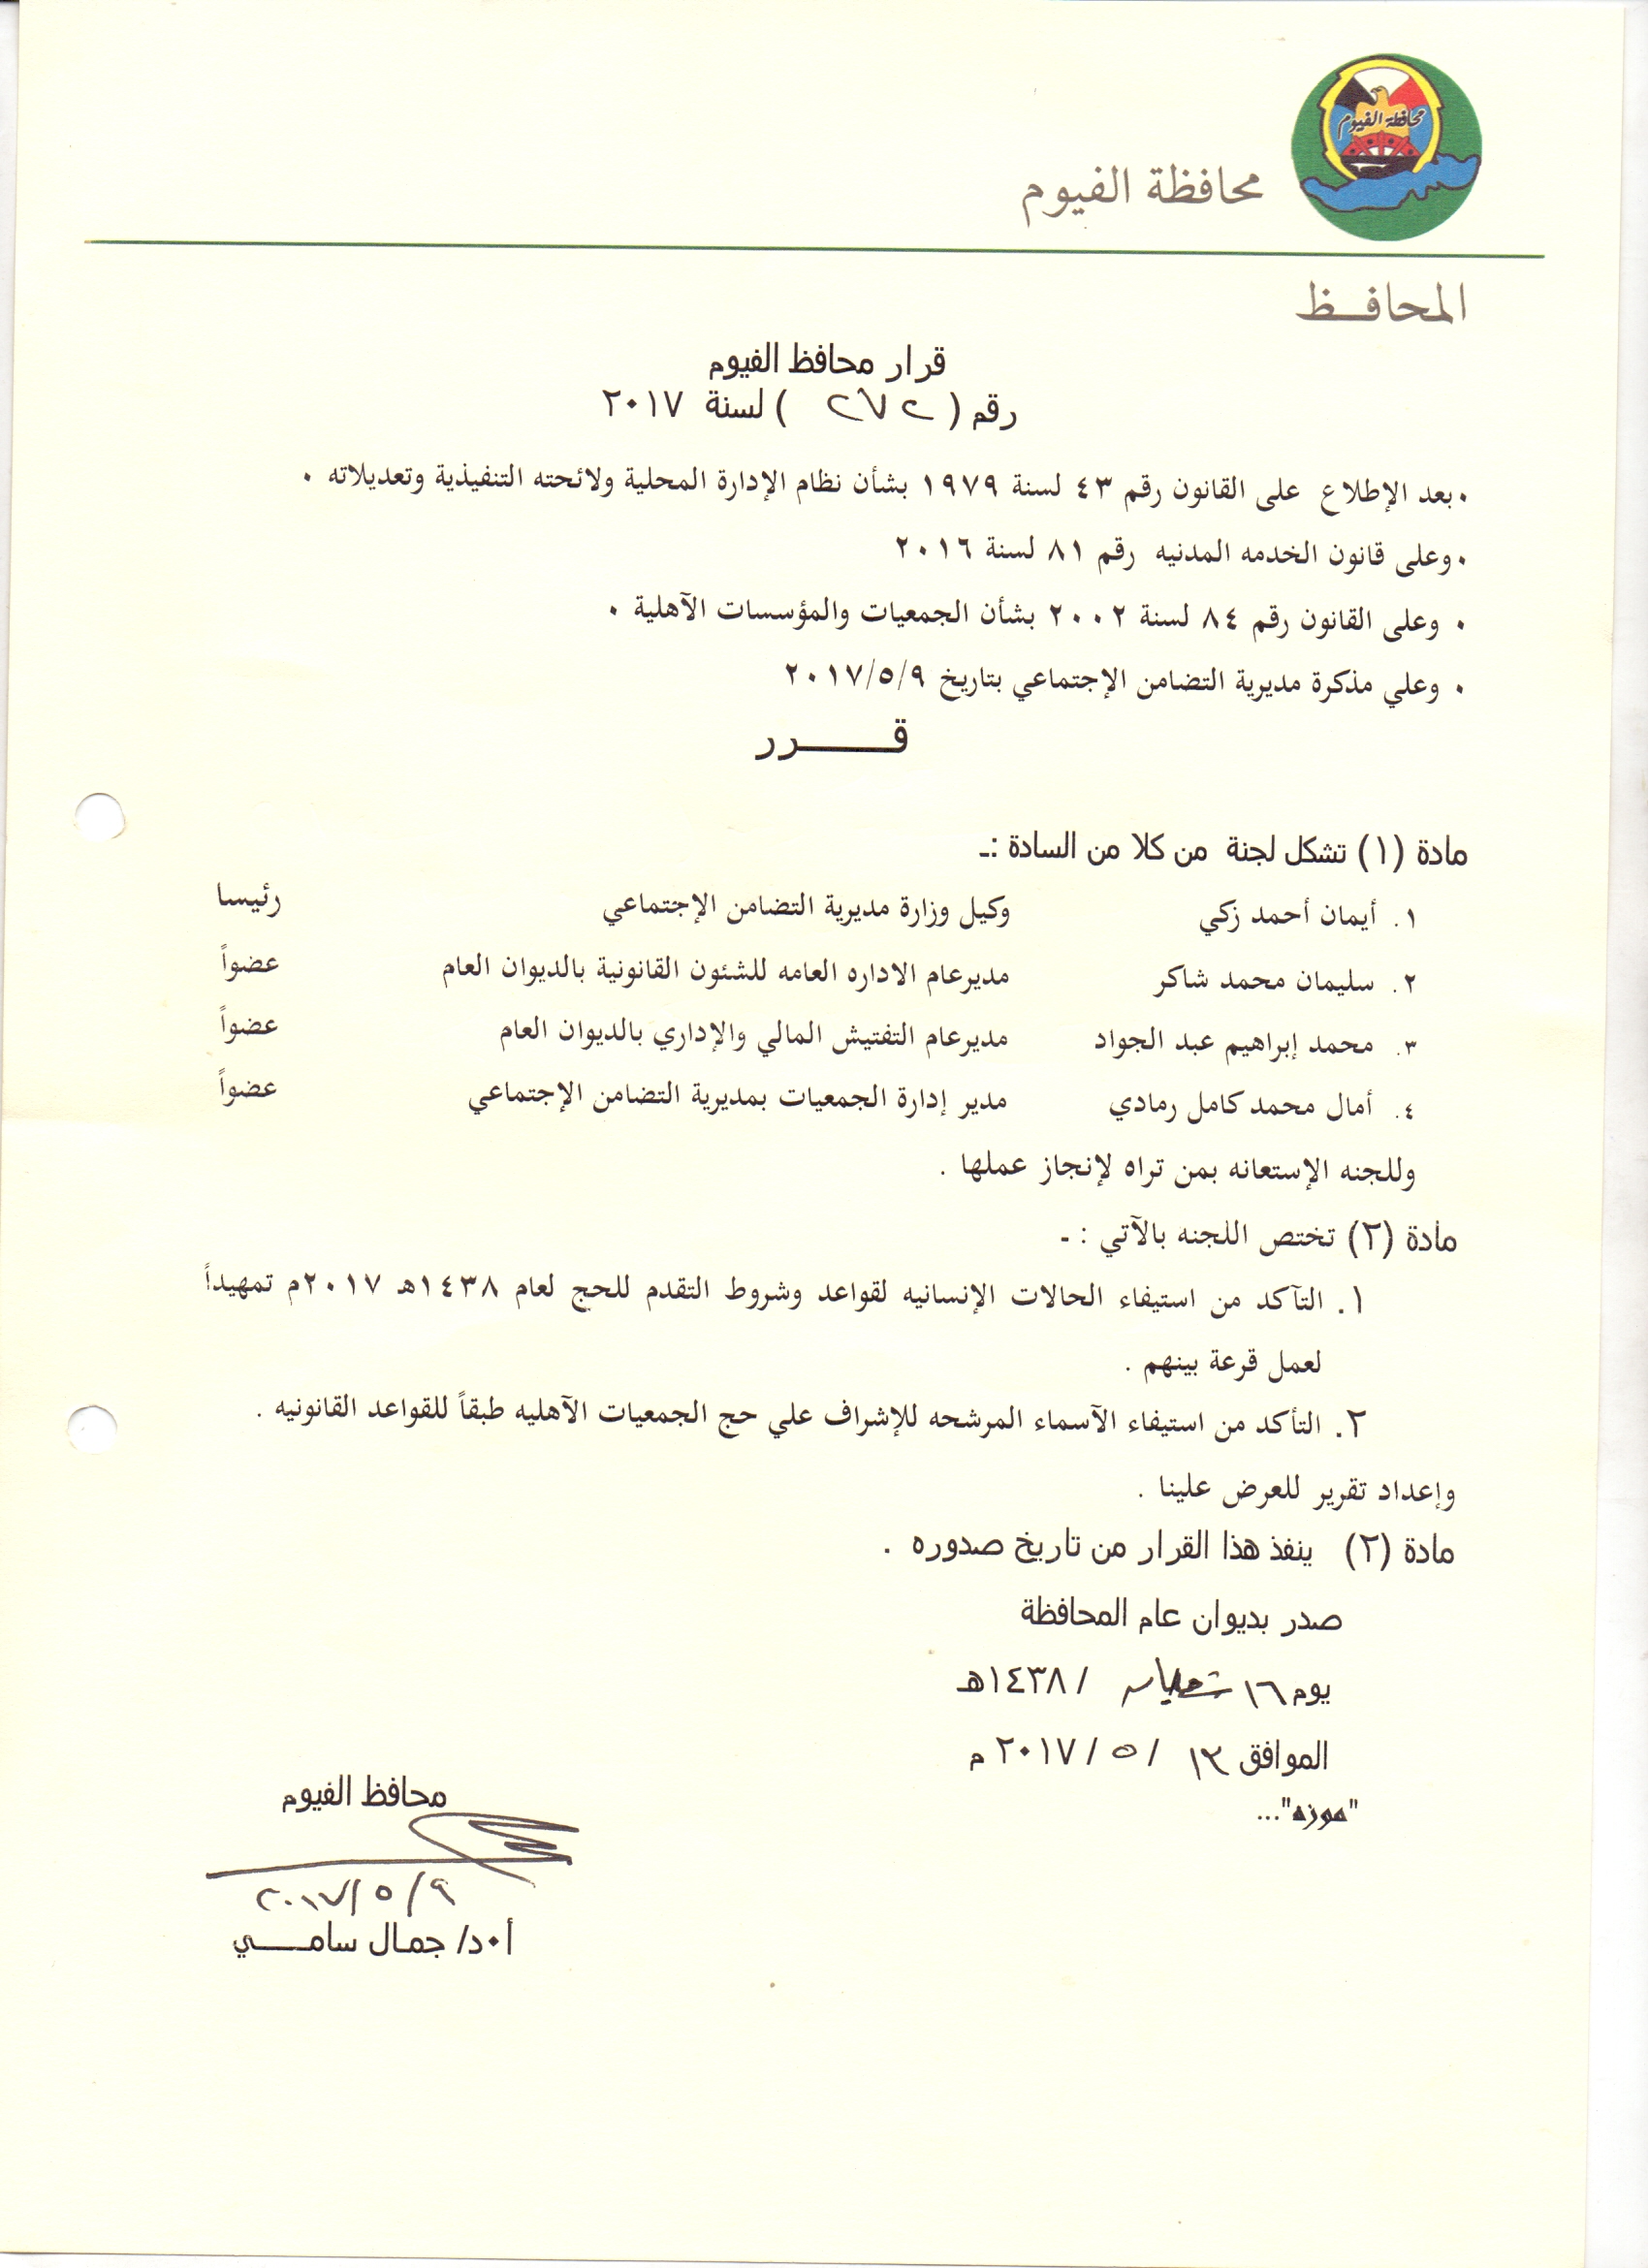 محافظة الفيوم
محافظة الفيوم
المحافـــظ
قرار محافظ الفيوم
رقم ( ٢٧٢ ) لسنة ٢٠١٧
٠ بعد الإطلاع على القانون رقم ٤٣ لسنة ١٩٧٩ بشأن نظام الإدارة المحلية ولائحته التنفيذية وتعديلاته ٠
٠ وعلى قانون الخدمه المدنيه رقم ٨١ لسنة ٢٠١٦
٠ وعلى القانون رقم ٨٤ لسنة ٢٠٠٢ بشأن الجمعيات والمؤسسات الآهلية ٠
٠ وعلي مذكرة مديرية التضامن الإجتماعي بتاريخ ٢٠١٧/٥/٩
قـــــــرر
مادة (١) تشكل لجنة من كلا من السادة :ـ
١. أيمان أحمد زكي وكيل وزارة مديرية التضامن الإجتماعي رئيسا
٢. سليمان محمد شاكر مديرعام الاداره العامه للشئون القانونية بالديوان العام عضواً
٣. محمد إبراهيم عبد الجواد مديرعام التفتيش المالي والإداري بالديوان العام عضواً
٤. أمال محمد كامل رمادي مدير إدارة الجمعيات بمديرية التضامن الإجتماعي عضواً
وللجنه الإستعانه بمن تراه لإنجاز عملها .
مادة (٢) تختص اللجنه بالآتي : ـ
١. التآكد من استيفاء الحالات الإنسانيه لقواعد وشروط التقدم للحج لعام ١٤٣٨هـ ٢٠١٧م تمهيداً
لعمل قرعة بينهم .
٢. التأكد من استيفاء الآسماء المرشحه للإشراف علي حج الجمعيات الآهليه طبقاً للقواعد القانونيه .
وإعداد تقرير للعرض علينا .
مادة (٢) ينفذ هذا القرار من تاريخ صدوره .
صدر بديوان عام المحافظة
يوم ١٦ شعبان / ١٤٣٨هـ
الموافق ١٣ / ٥ / ٢٠١٧ م
"موزه"...
محافظ الفيوم
٢٠١٧/٥/٩
أ٠د/ جمال سامـــــي